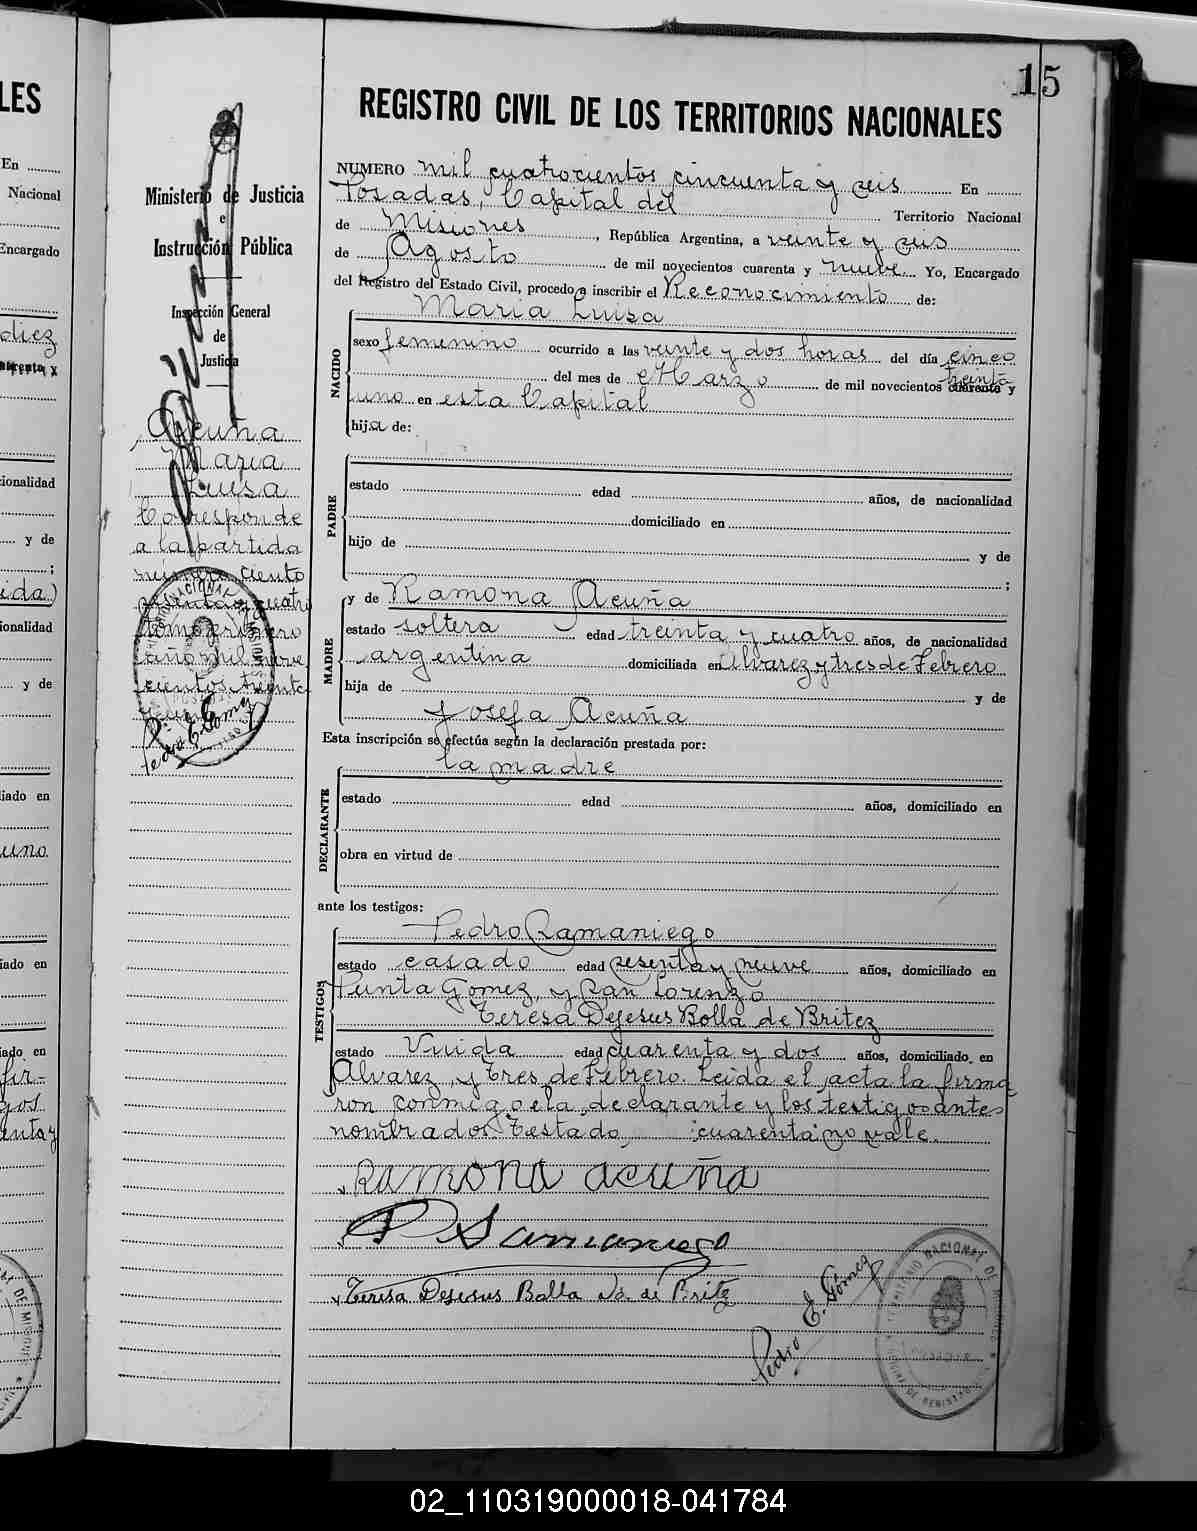 15
REGISTRO CIVIL DE LOS TERRITORIOS NACIONALES
NUMERO mil cuatrocientos cincuenta y seis En
Posadas, Capital del Territorio Nacional
de Misiones, República Argentina, a veinte y seis
de Agosto de mil novecientos cuarenta y nueve Yo, Encargado
del Registro del Estado Civil, procedo a inscribir el Reconocimiento de:
Maria Luisa
NACIDO
sexo femenino ocurrido a las veinte y dos horas del día cinco
del mes de Marzo de mil novecientos cuarenta treinta y
uno en esta Capital
hija de:
PADRE
estado edad años, de nacionalidad
domiciliado en
hijo de y de
;
MADRE
y de Ramona Acuña
estado soltera edad treinta y cuatro años, de nacionalidad
argentina domiciliada en Alvarez y tres de Febrero
hija de y de
Josefa Acuña
Esta inscripción se efectúa según la declaración prestada por:
la madre
DECLARANTE
estado edad años, domiciliado en
obra en virtud de
ante los testigos:
TESTIGOS
Pedro Samaniego
estado casado edad sesenta y nueve años, domiciliado en
Punta Gomez, y San Lorenzo
Teresa Dejesus Bolla de Britez
estado Viuda edad cuarenta y dos años, domiciliado en
Alvarez y Tres de Febrero. Leida el acta la firma
ron conmigo la declarante y los testigos antes
nombrados. Testado: cuarenta: no vale.
Ramona Acuña
P Samaniego
Teresa Dejesus Bolla Vda de Britz
Pedro E. Gómez
Ministerio de Justicia
e
Instrucción Pública
Inspección General
de
Justicia
Acuña
Maria
Luisa
Corresponde
a la partida
numero ciento
cuatro
tomo primero
año mil nove
cientos treinta
y uno
Pedro E. Gómez
LES
En
Nacional
Encargado
diez
cuarenta y
ionalidad
y de
;
ida)
ionalidad
y de
iado en
uno
iado en
iado en
fir-
gos
enta y
02_110319000018-041784